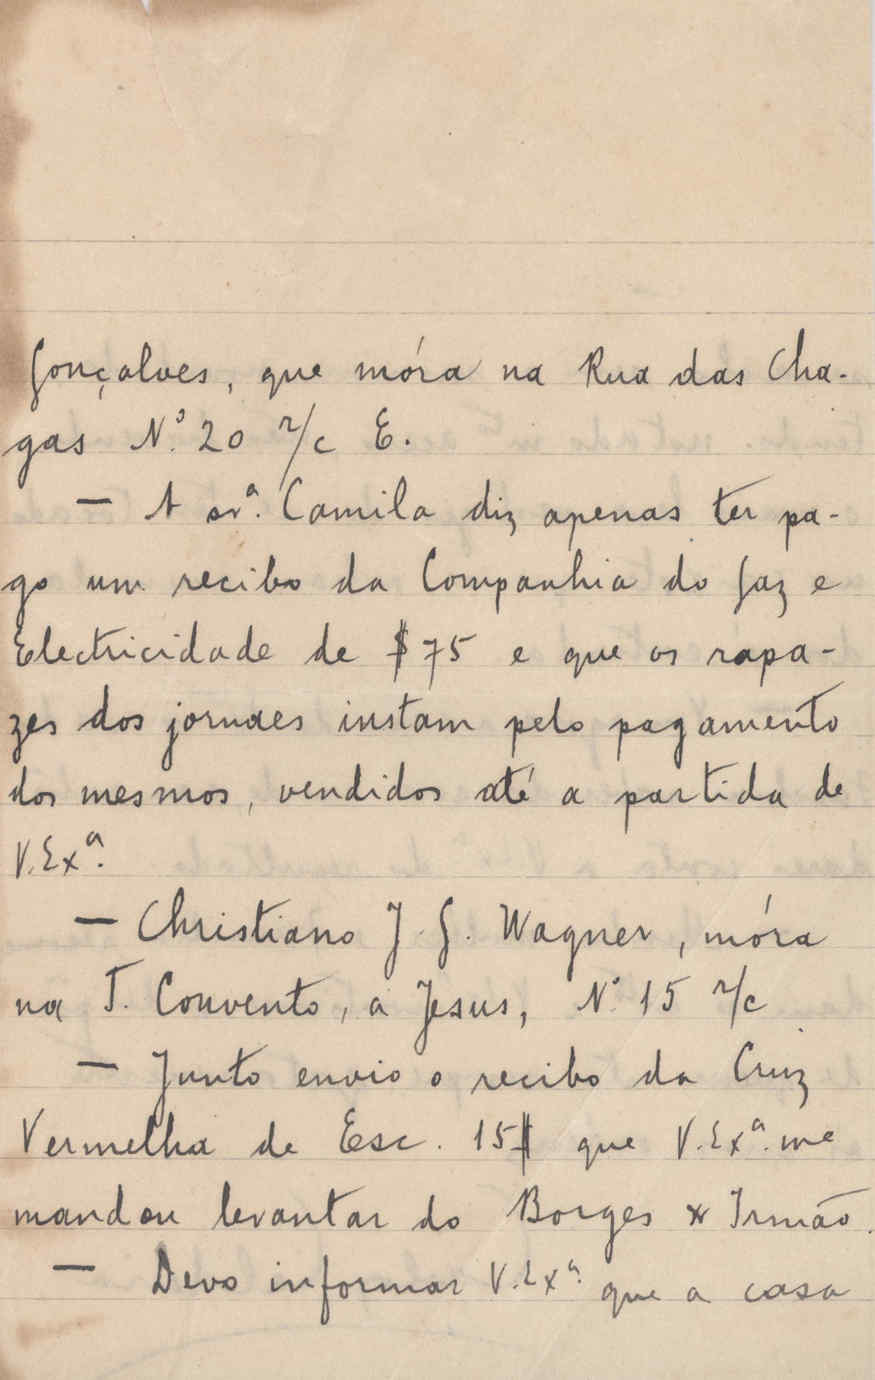 Gonçalves, que móra na Rua das Cha-
gas Nº. 20 r/c E.
— A srª. Camila diz apenas ter pa-
go um recibo da Companhia do Gaz e
Electricidade de $75 e que os rapa-
zes dos jornaes instam pelo pagamento
dos mesmos, vendidos até a partida de
V.Exª.
— Christiano J. G. Wagner, móra
na T. Convento, a Jesus, Nº. 15 r/c
— Junto envio o recibo da Cruz
Vermelha de Esc. 15$ que V.Exª. me
mandou levantar do Borges & Irmão.
— Devo informar V.Exª. que a casa